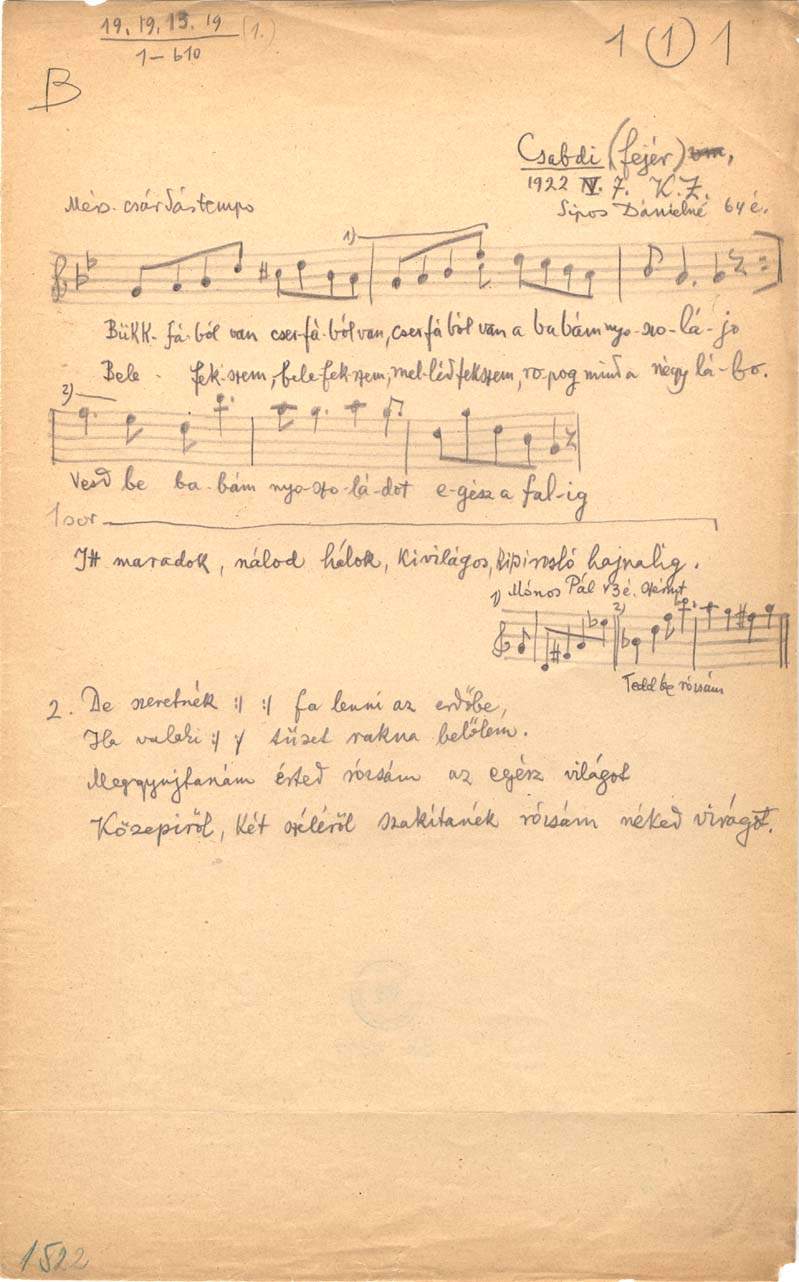 19, 19, 13, 19 (1.)
1 – b10
1 (1) 1
B
Csabdi (Fejér)
1922 IV. 7. K. Z.
Mérs. csárdástempo
Sipos Dánielné 64 é.
1)
Bükk-fá-ból van cser-fá-ból van, cserfából van a babám nyo-szo-lá-jo
Bele - fek-szem, bele fek-szem, mel-léd fekszem, ro-pog mind a négy lá-bo.
2)
Vesd be ba-bám nyo-szo-lá-dot e-gész a fal-ig
1 sor
Itt maradok, nálod hálok, kivilágos, kipirosló hajnalig.
1) Mónos Pál 73 é. szerint
2)
Tedd be rózsám
2. De szeretnék :/ :/ fa lenni az erdőbe,
Ha valaki :/ :/ tüzet rakna belőlem.
Meggyujtanám érted rózsám az egész világot
Közepiről, két széléről szakítanék rózsám néked virágot.
1522